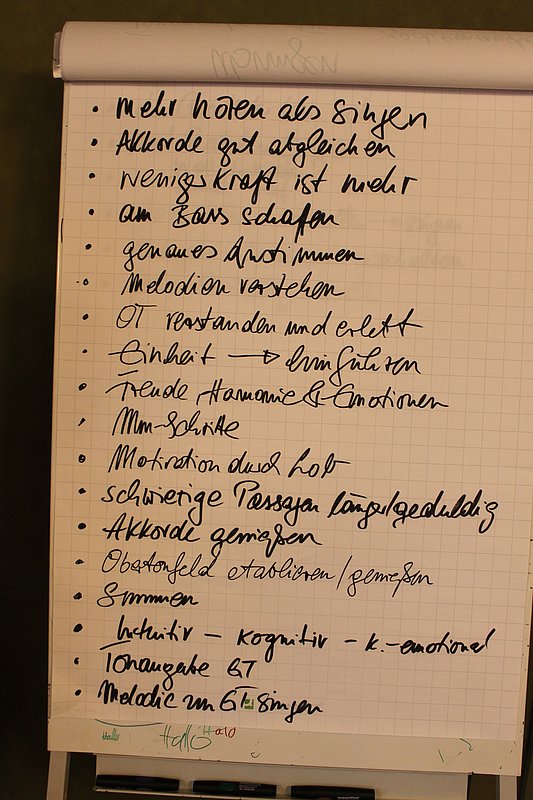 • mehr hören als singen
• Akkorde gut abgleichen
• weniger Kraft ist mehr
• am Bass schafen
• genaues Anstimmen
• Melodien verstehen
• OT verstanden und erlebt
• Einheit → hinführen
• Freude, Harmonie & Emotionen
• Mm-Schritte
• Motivation durch Lob
• schwierige Passagen länger/geduldig
• Akkorde genießen
• Obertonfeld etablieren/genießen
• Summen
• Intuitiv – kognitiv – k.-emotional
• Tonangabe GT
• Melodie zum GT singen
Hallo Hallo Halo